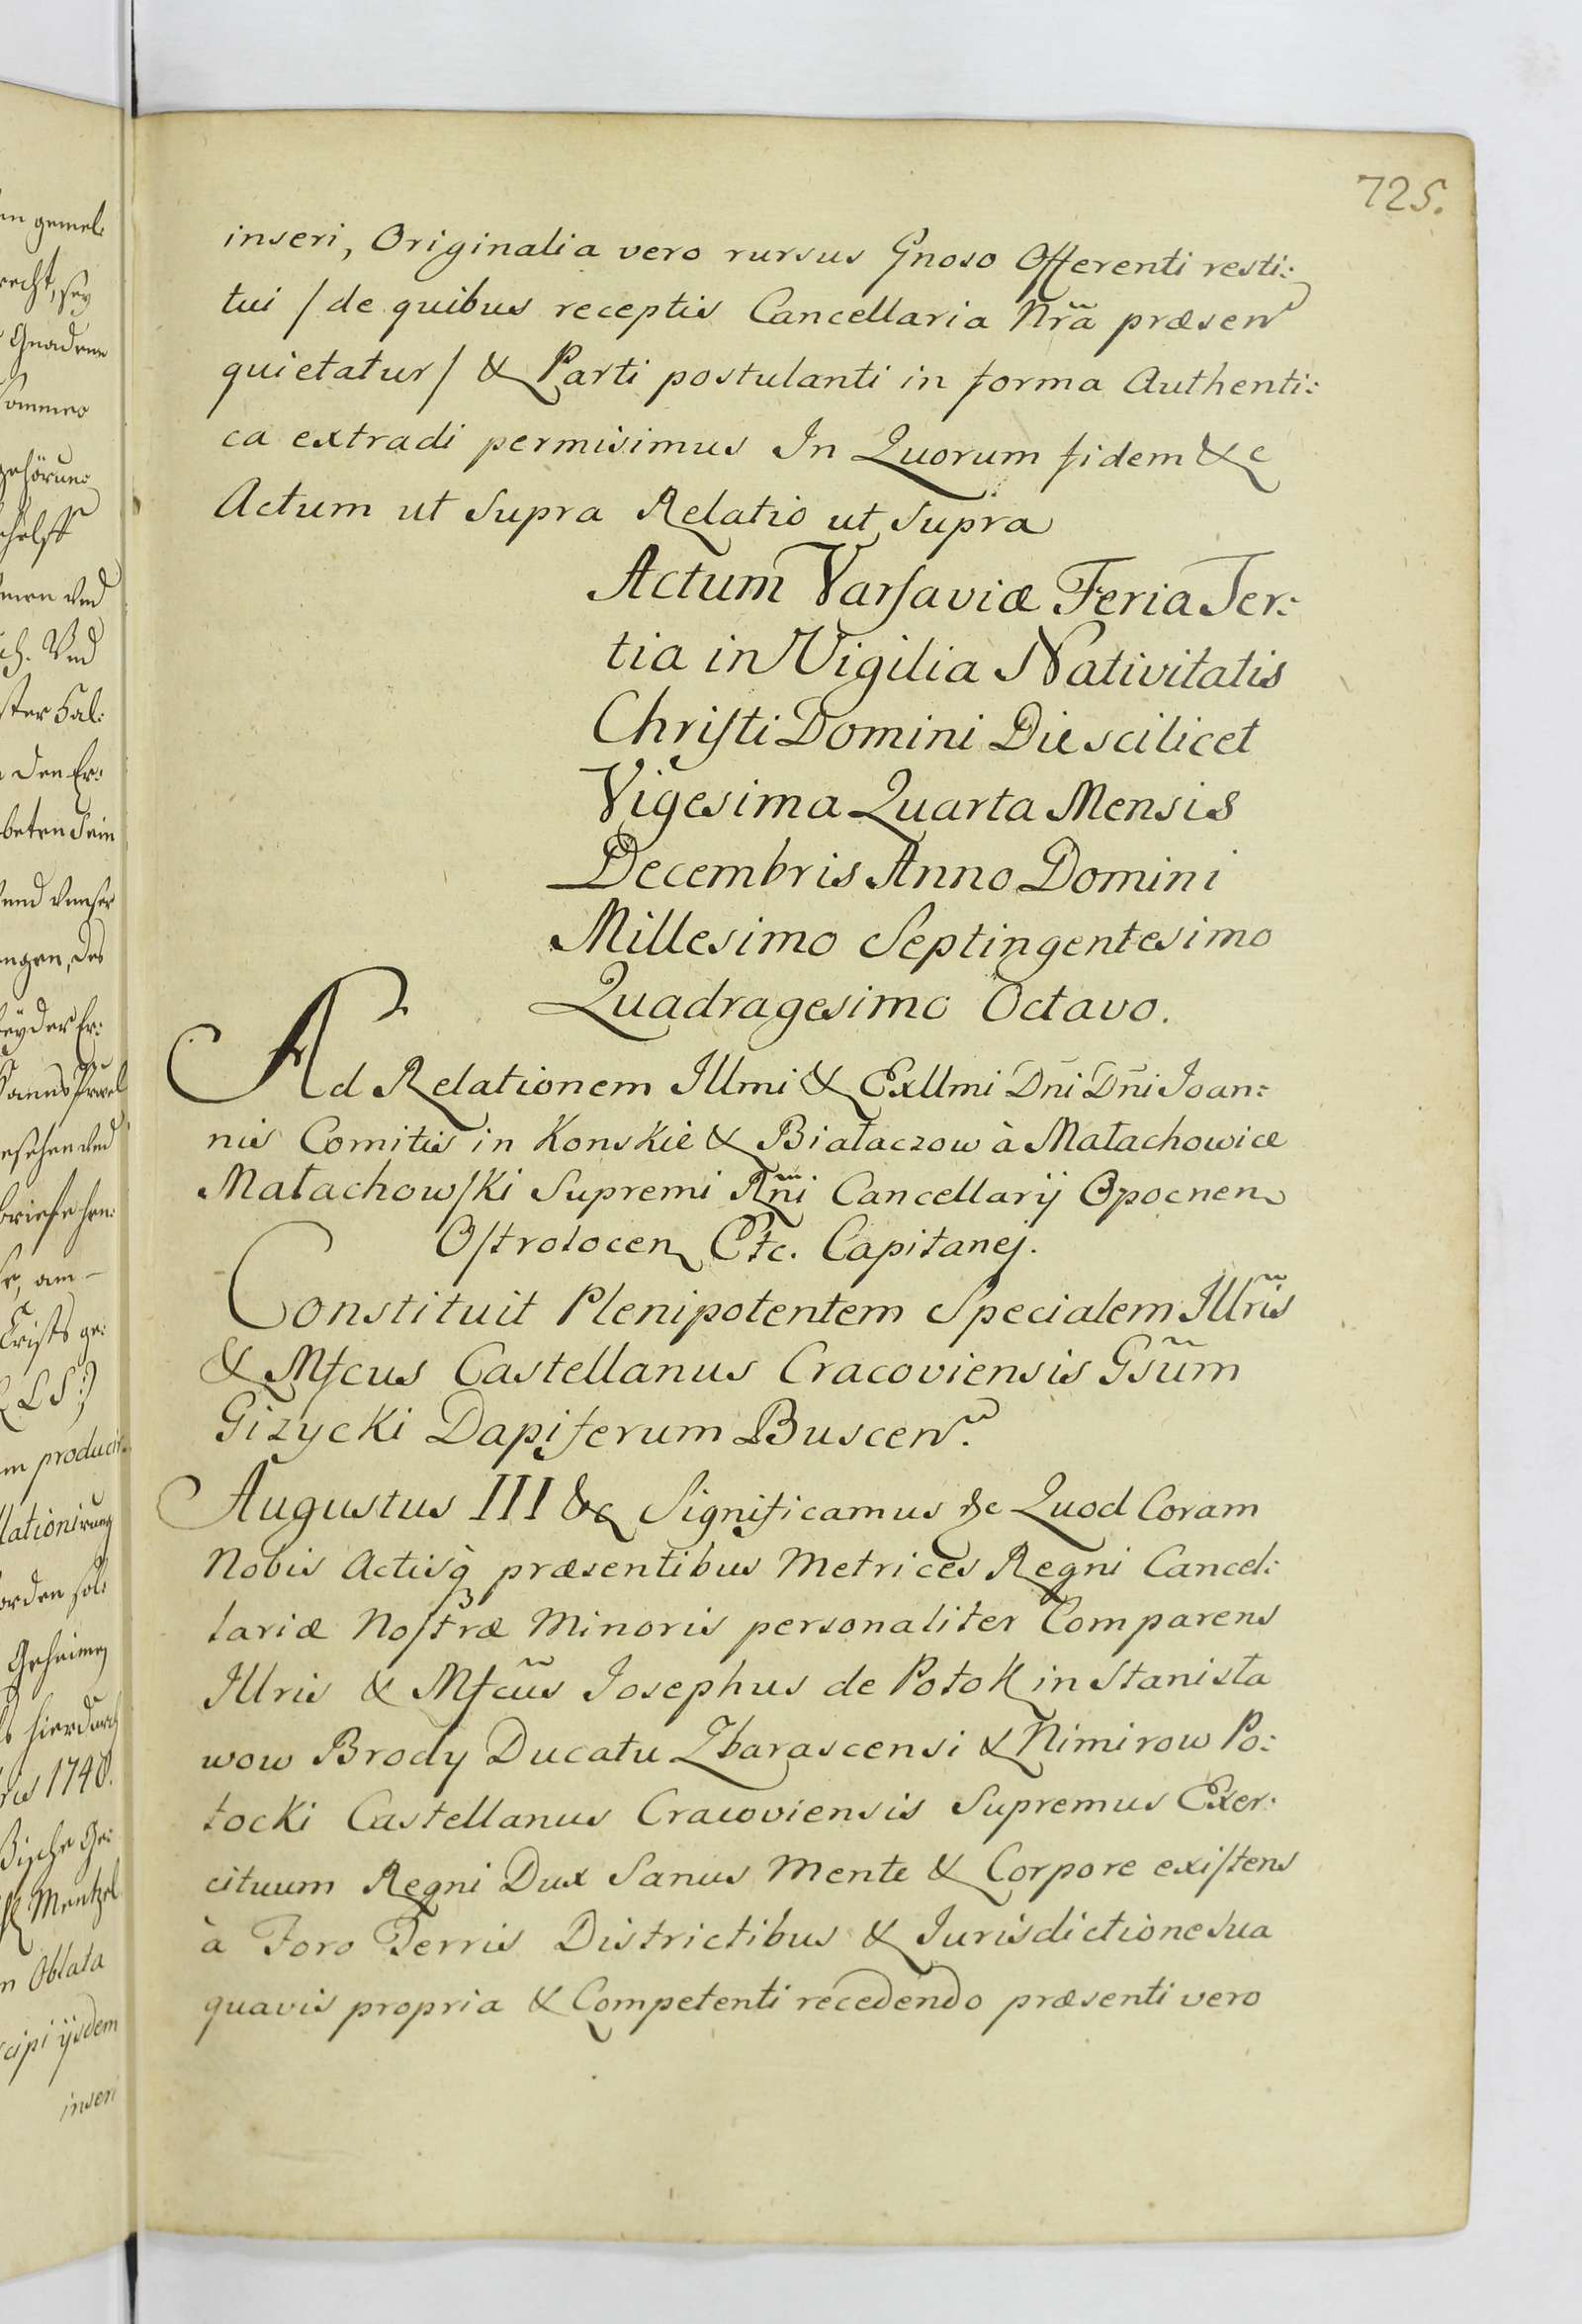 725.
inseri, Originalia vero rursus Gnoso Offerenti resti:
tui / de quibus receptis Cancellaria Nrã præsen
quietatur / & Parti postulanti in forma Authenti:
ca extradi permisimus In Quorum fidem &c
Actum ut Supra Relatio ut Supra
Actum Varsaviæ Feria Ter:
tia in Vigilia Nativitatis
Christi Domini Die scilicet
Vigesima Quarta Mensis
Decembris Anno Domini
Millesimo Septingentesimo
Quadragesimo Octavo.
Ad Relationem Illmi & Exllmi Dñi Dñi Ioan:
nis Comitis in Konskie & Białaczow à Małachowice
Małachowski Supremi Rñi Cancellarij Opocnen
Ostrolocen Etc. Capitanej.
Constituit Plenipotentem Specialem Illris̃
& Mfcus Castellanus Cracoviensis Gsũm
Gizycki Dapiferum Buscen.
Augustus III &c Significamus &c Quod Coram
Nobis Actisq præsentibus Metrices Regni Cancel:
lariæ Nostræ Minoris personaliter Comparens
Illris & Mfcũs Iosephus de Potok in Stanisła
wow Brody Ducatu Zbarascensi & Nimirow Po:
tocki Castellanus Cracoviensis Supremus Exer:
cituum Regni Dux Sanus Mente & Corpore existens
à Foro Terris Districtibus & Iurisdictione sua
quavis propria & Competenti recedendo præsenti vero